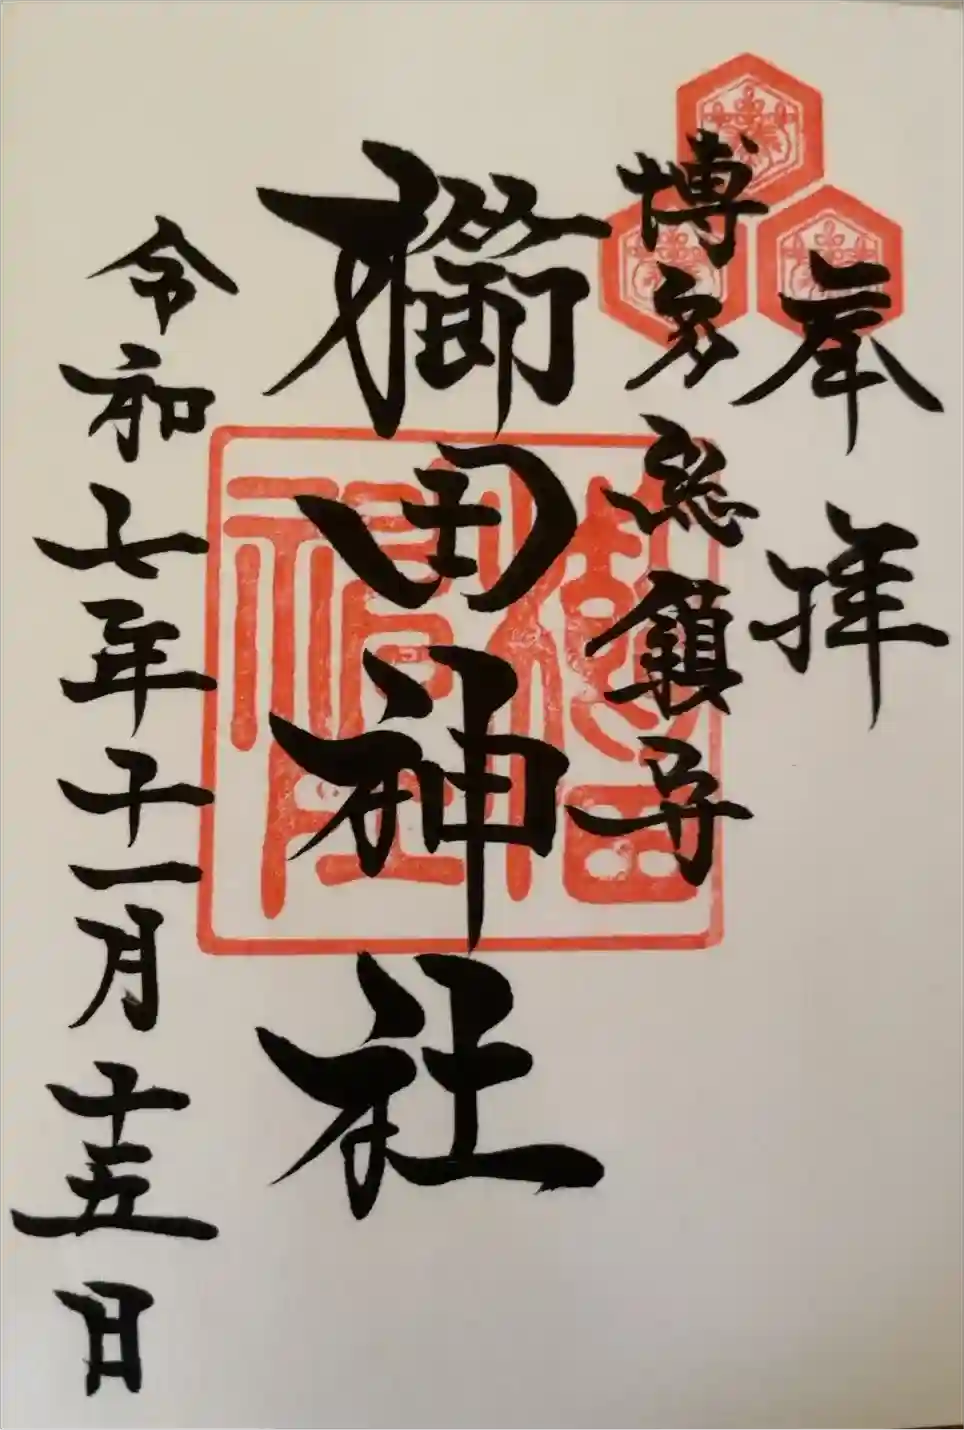 奉拝
博多総鎮守
櫛田神社
令和七年十一月十五日